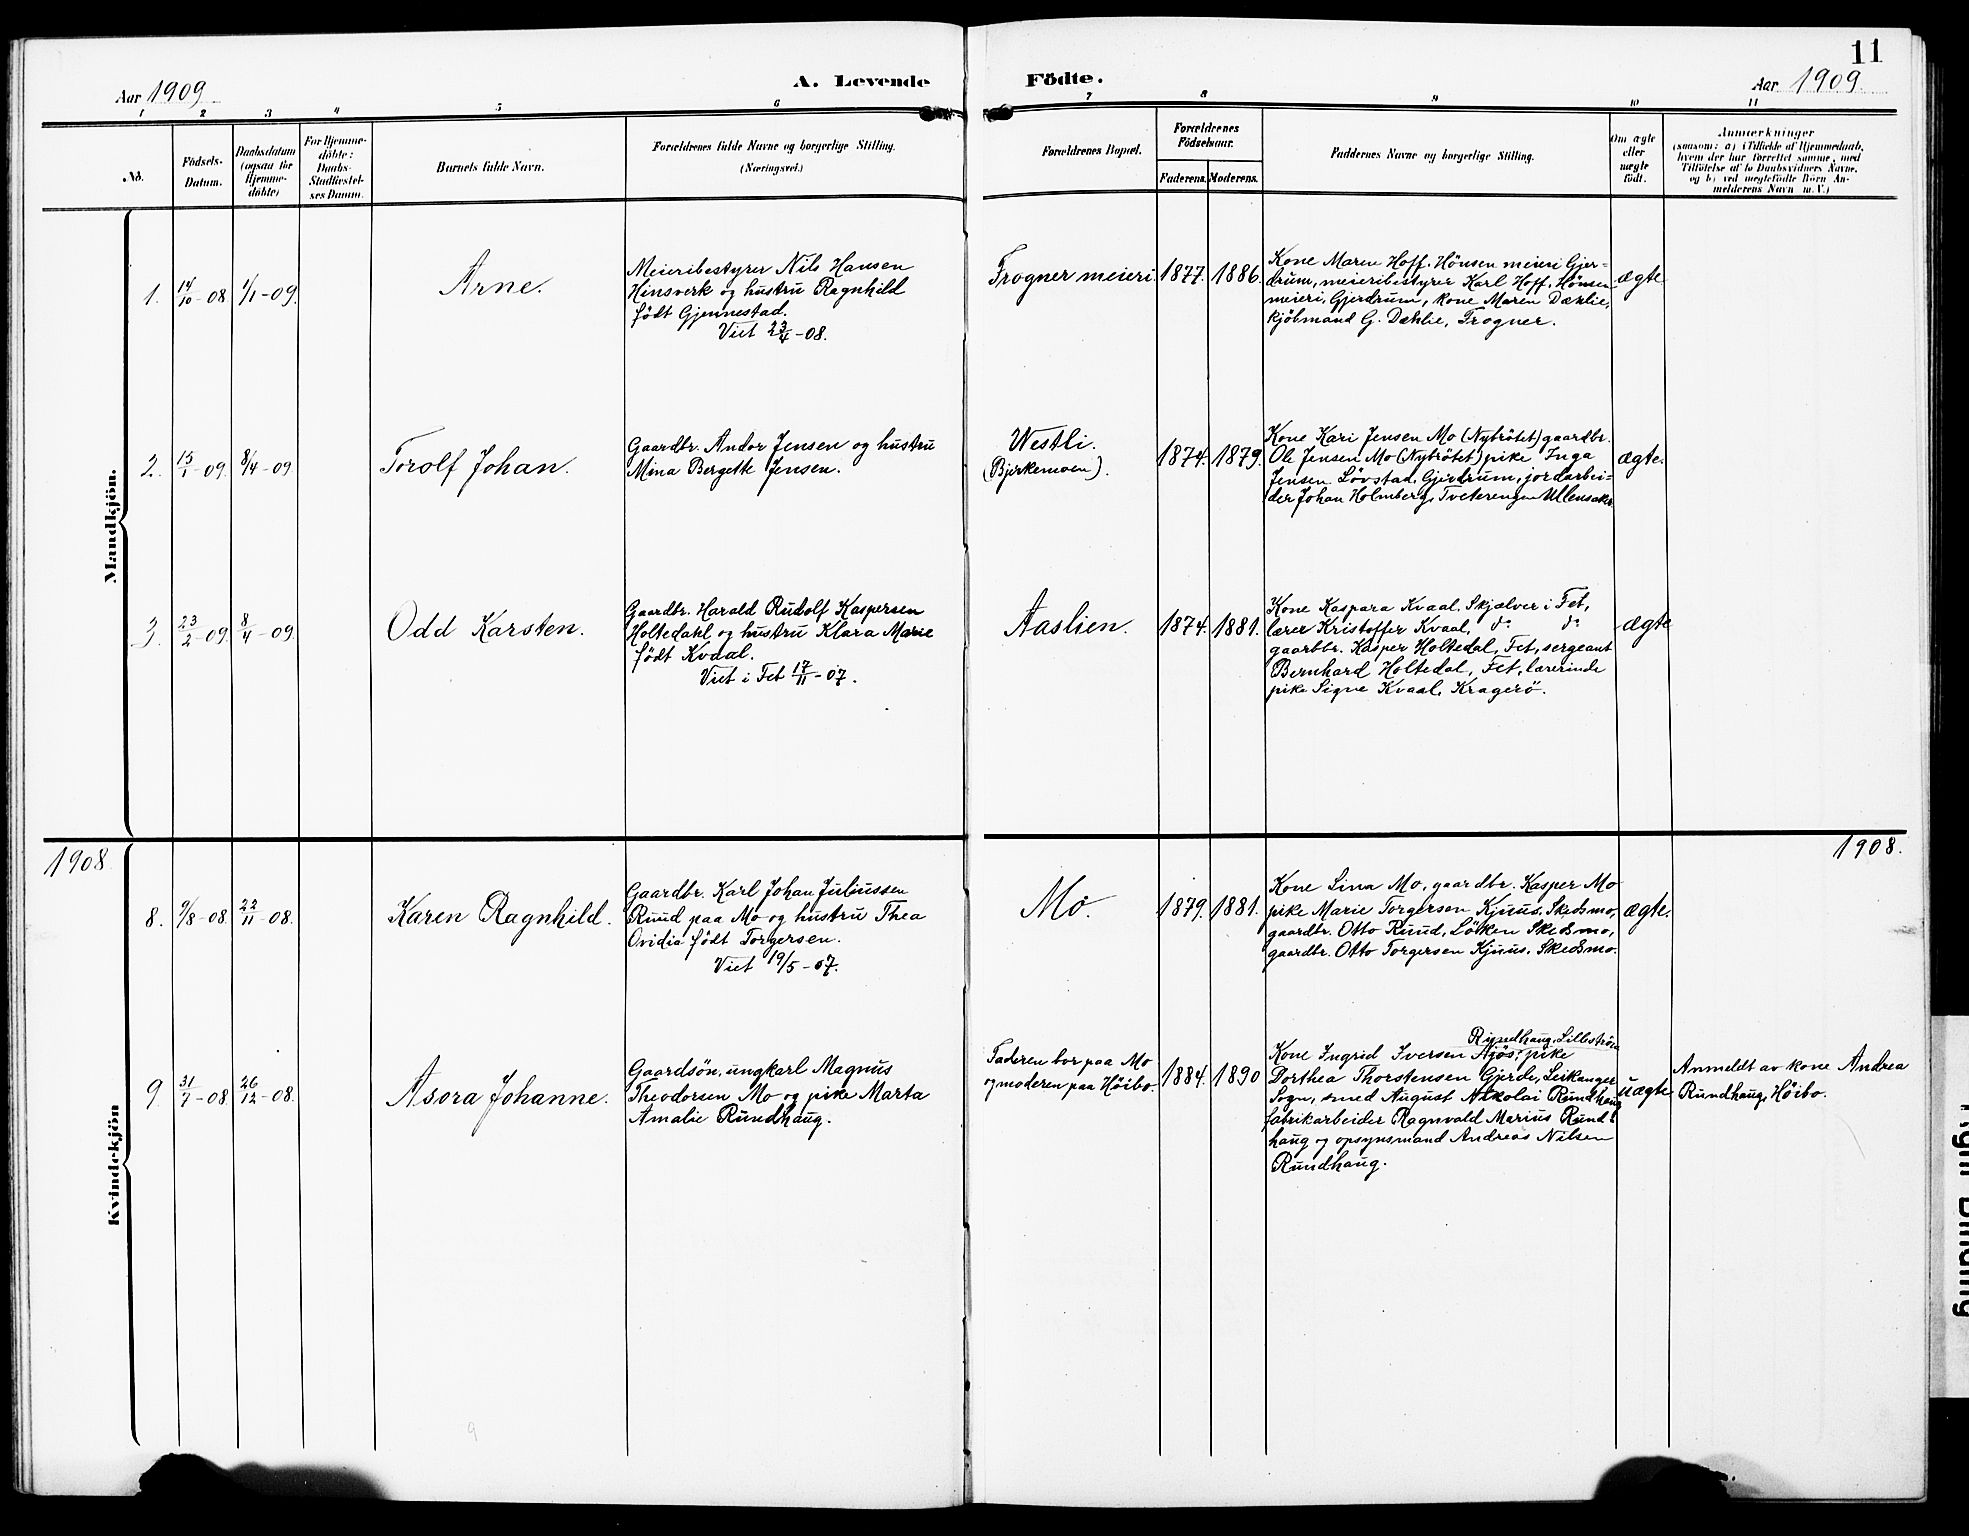 11
A. Levende Födte.
Aar 1909
Aar 1909.
1 2 3 4 5 6 7 8 9 10 11
No.
Födsels-
Datum.
Daabsdatum
(ogsaa for
Hjemme-
döbte)
For Hjemme-
döbte:
Daabs-
Stadfæstel-
ses Datum.
Barnets fulde Navn.
Forældrenes fulde Navne og borgerlige Stilling.
(Næringsvei.)
Forældrenes Bopæl.
Forældrenes
Födselsaar.
Faderens. Moderens.
Faddernes Navne og borgerlige Stilling.
Om ægte
eller
uægte
födt.
Anmerkninger
(saasom: a) i Tilfælde af Hjemmedaab,
hvem der har forrettet samme, med
Tilföielse af to Daabsvidners Navne,
og b) ved uegtefödte Börn An-
melderens Navn m. V.)
Mandkjön.
1.
14/10-08.
1/1-09.
Arne.
Meieribestyrer Nils Hansen
Hinsverk og hustru Ragnhild
födt Gjennestad.
Viet 23/4-08.
Frogner meieri.
1877.
1886.
Kone Maren Hoff. Hönsen meieri Gjer-
drum, meieribestyrer Karl Hoff. Hönsen
meieri, Gjerdrum, kone Maren Dæhlie,
kjöbmand G. Dæhlie, Frogner.
ægte
2.
15/1-09.
8/4-09
Torolf Johan.
Gaardbr. Andor Jensen og hustru
Mina Bergette Jensen.
Westli.
(Bjerkemoen).
1874.
1879.
Kone Kari Jensen Mo (Nybrötet) gaardbr.
Ole Jensen Mo (Nybrötet) pike Inga
Jensen Lövstad, Gjerdrum, jordarbei=
der Johan Holmberg, Tveterengen Ullensaker
ægte.
3.
23/2-09.
8/4-09.
Odd Karsten.
Gaardbr. Harald Rudolf Kaspersen
Holtedahl og hustru Klara Marie
födt Kvaal.
Viet i Fet 17/11-07.
Aaslien.
1874.
1881.
Kone Kaspara Kvaal, Skjælver i Fet,
lærer Kristoffer Kvaal, do do
gaarbbr. Kasper Holtedal, Fet, sergeant
Bernhard Holtedal, Fet, lærerinde
pike Signe Kvaal, Kragerö.
ægte
1908
1908.
Kvindekjön
8.
9/8-08.
22/11-08.
Karen Ragnhild.
Gaardbr. Karl Johan Juliussen
Ruud paa Mo og hustru Thea
Ovidia födt Torgersen.
Viet 19/5-07.
Mo.
1879.
1881.
Kone Lina Mo, gaardbr. Kasper Mo
pike Marie Torgersen Kjuus, Skedsmo,
gaardbr. Otto Ruud, Löken Skedsmo,
gaardbr. Otto Torgersen Kjuus, Skedsmo.
ægte.
9.
31/7-08.
26/12-08.
Asora Johanne.
Gaardsön, ungkarl Magnus
Theodorsen Mo og pike Marta
Amalie Rundhaug.
Faderen bor paa Mo
og moderen paa Höibo.
1884.
1890
Rundhaug, Lilleström
Kone Ingrid Iversen pike
Dorthea Thorstensen Gjerde, Leikanger
Sogn, smed August Nikolai Rundhaug
fabrikarbeider Ragnvald Marius Rund=
haug og opsynsmand Andreas Nilsen
Rundhaug.
uægte
Anmeldt av kone Andrea
Rundhaug, Höibo.
Binding